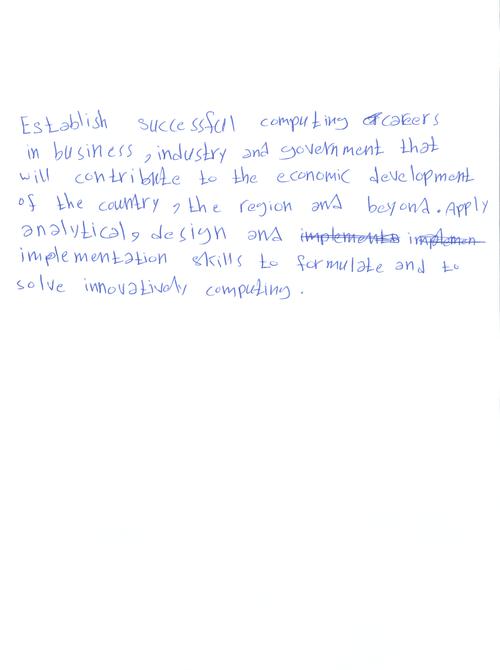 Establish successful computing careers
in business, industry and government that
will contribute to the economic development
of the country, the region and beyond. Apply
analytical, design and
implementation skills to formulate and to
solve innovatively computing.